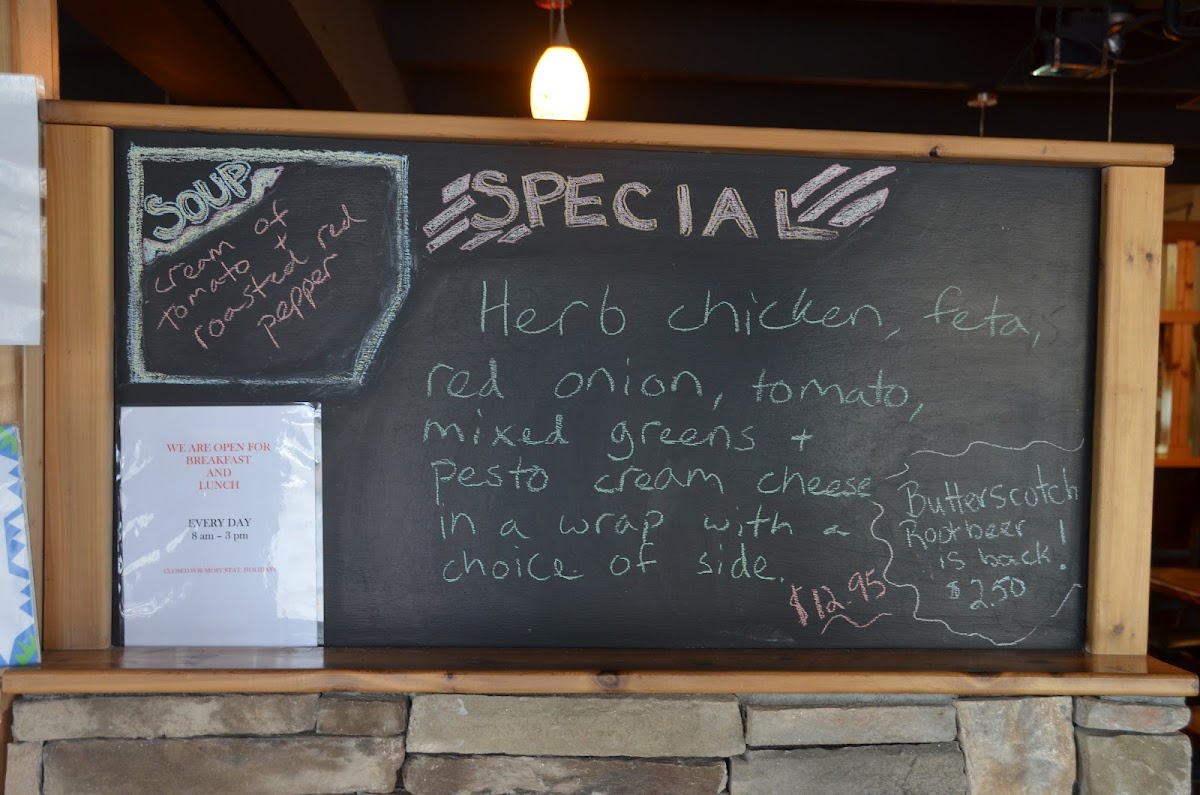 SOUP
cream of
tomato +
roasted red
pepper
SPECIAL
Herb chicken, feta,
red onion, tomato,
mixed greens +
pesto cream cheese
in a wrap with a
choice of side.
$12.95
Butterscotch
Rootbeer !
is back!
$2.50
WE ARE OPEN FOR
BREAKFAST
AND
LUNCH
EVERY DAY
8 am – 3 pm
CLOSED FOR MOST STAT. HOLIDAYS